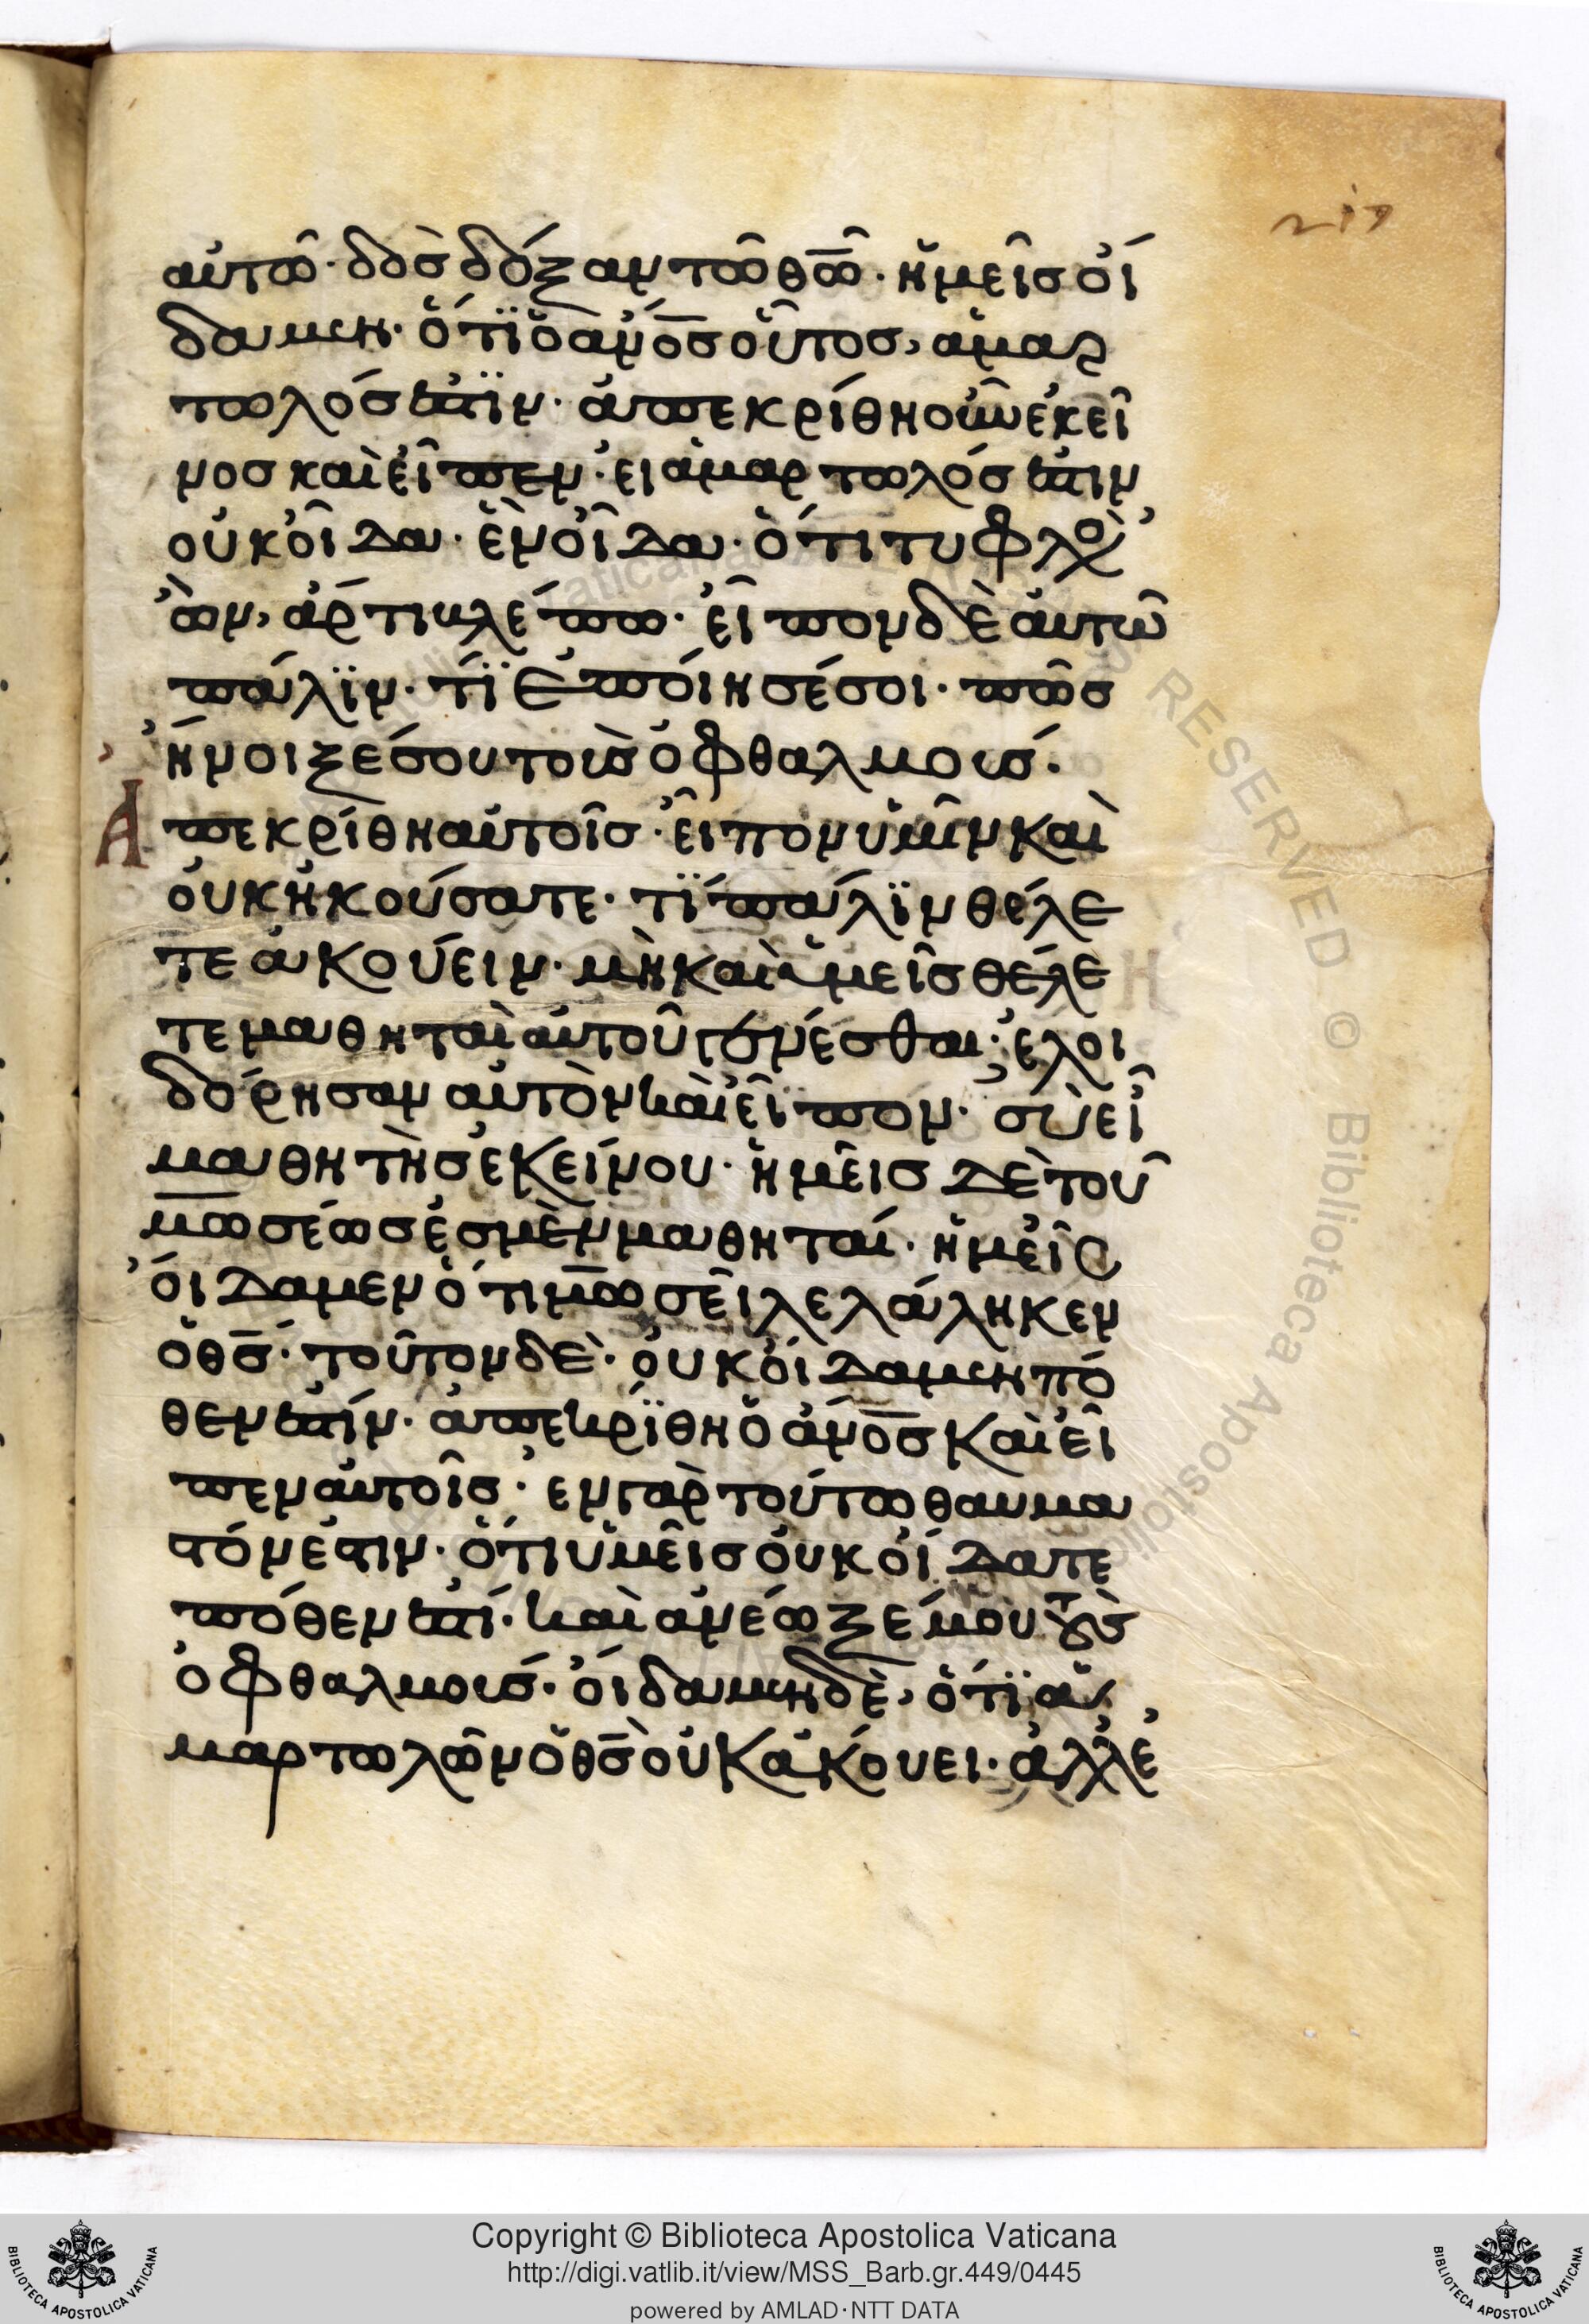 αὐτῶ· δὸσ δόξαν τῶ θ̅ω̅· ἡμεῖσ οἴ
δαμεν· ὅτϊ ὁ α̅ν̅ο̅σ οὗτοσ, ἁμαρ
τωλόσ ἐστϊν· ἀπεκρίθη οὖν ἐκεῖ
νοσ καὶ εἶπεν· εἰ ἁμαρτωλόσ ἐστιν
οὐκ οἶδα· ἓν οἶδα· ὅτι τυφλὸ
ὢν, ἄρτι βλέπω· εἶπον δὲ αὐτῶ
πάλϊν· τΐ ἐποίησέ σοι· πῶσ
ἤνοιξέ σου τοὺσ ὀφθαλμούσ·
Ἀπεκρίθη αὐτοῖσ· εἶπον ὑμῖν καὶ
οὐκ ἠκούσατε· τΐ πάλϊν θέλε
τε ἀκούειν· μὴ καὶ ὑμεῖσ θέλε
τε μαθηταὶ αὐτοῦ γενέσθαι· ἐλοι
δόρησαν αὐτὸν καὶ εἶπον· σὺ εἶ
μαθητὴσ ἐκείνου· ἡμεῖσ δὲ τοῦ
μ̅ω̅σέωσ ἐσμὲν μαθηταί· ἡμεῖσ
οἴδαμεν ὅτι μ̅ω̅σεῖ λελάληκεν
ὁ θ̅σ̅· τοῦτον δὲ· οὐκ οἴδαμεν πό
θεν ἐστίν· ἀπεκρΐθη ὁ α̅ν̅ο̅σ καὶ εἶ
πεν αὐτοῖσ· ἐν γὰρ τούτω θαυμα
τόν ἐστιν· ὅτι ὑμεῖσ οὐκ οἴδατε
πόθεν ἐστί· καὶ ἀνέωξέ μου τοὺσ
ὀφθαλμούσ· οἴδαμεν δὲ, ὅτϊ ἁ
μαρτωλῶν ὁ θ̅σ̅ οὐκ ἀκούει· ἀλλ' ἐ
Copyright © Biblioteca Apostolica Vaticana
http://digi.vatlib.it/view/MSS_Barb.gr.449/0445
powered by AMLAD·NTT DATA
BIBLIOTECA APOSTOLICA VATICANA
BIBLIOTECA APOSTOLICA VATICANA